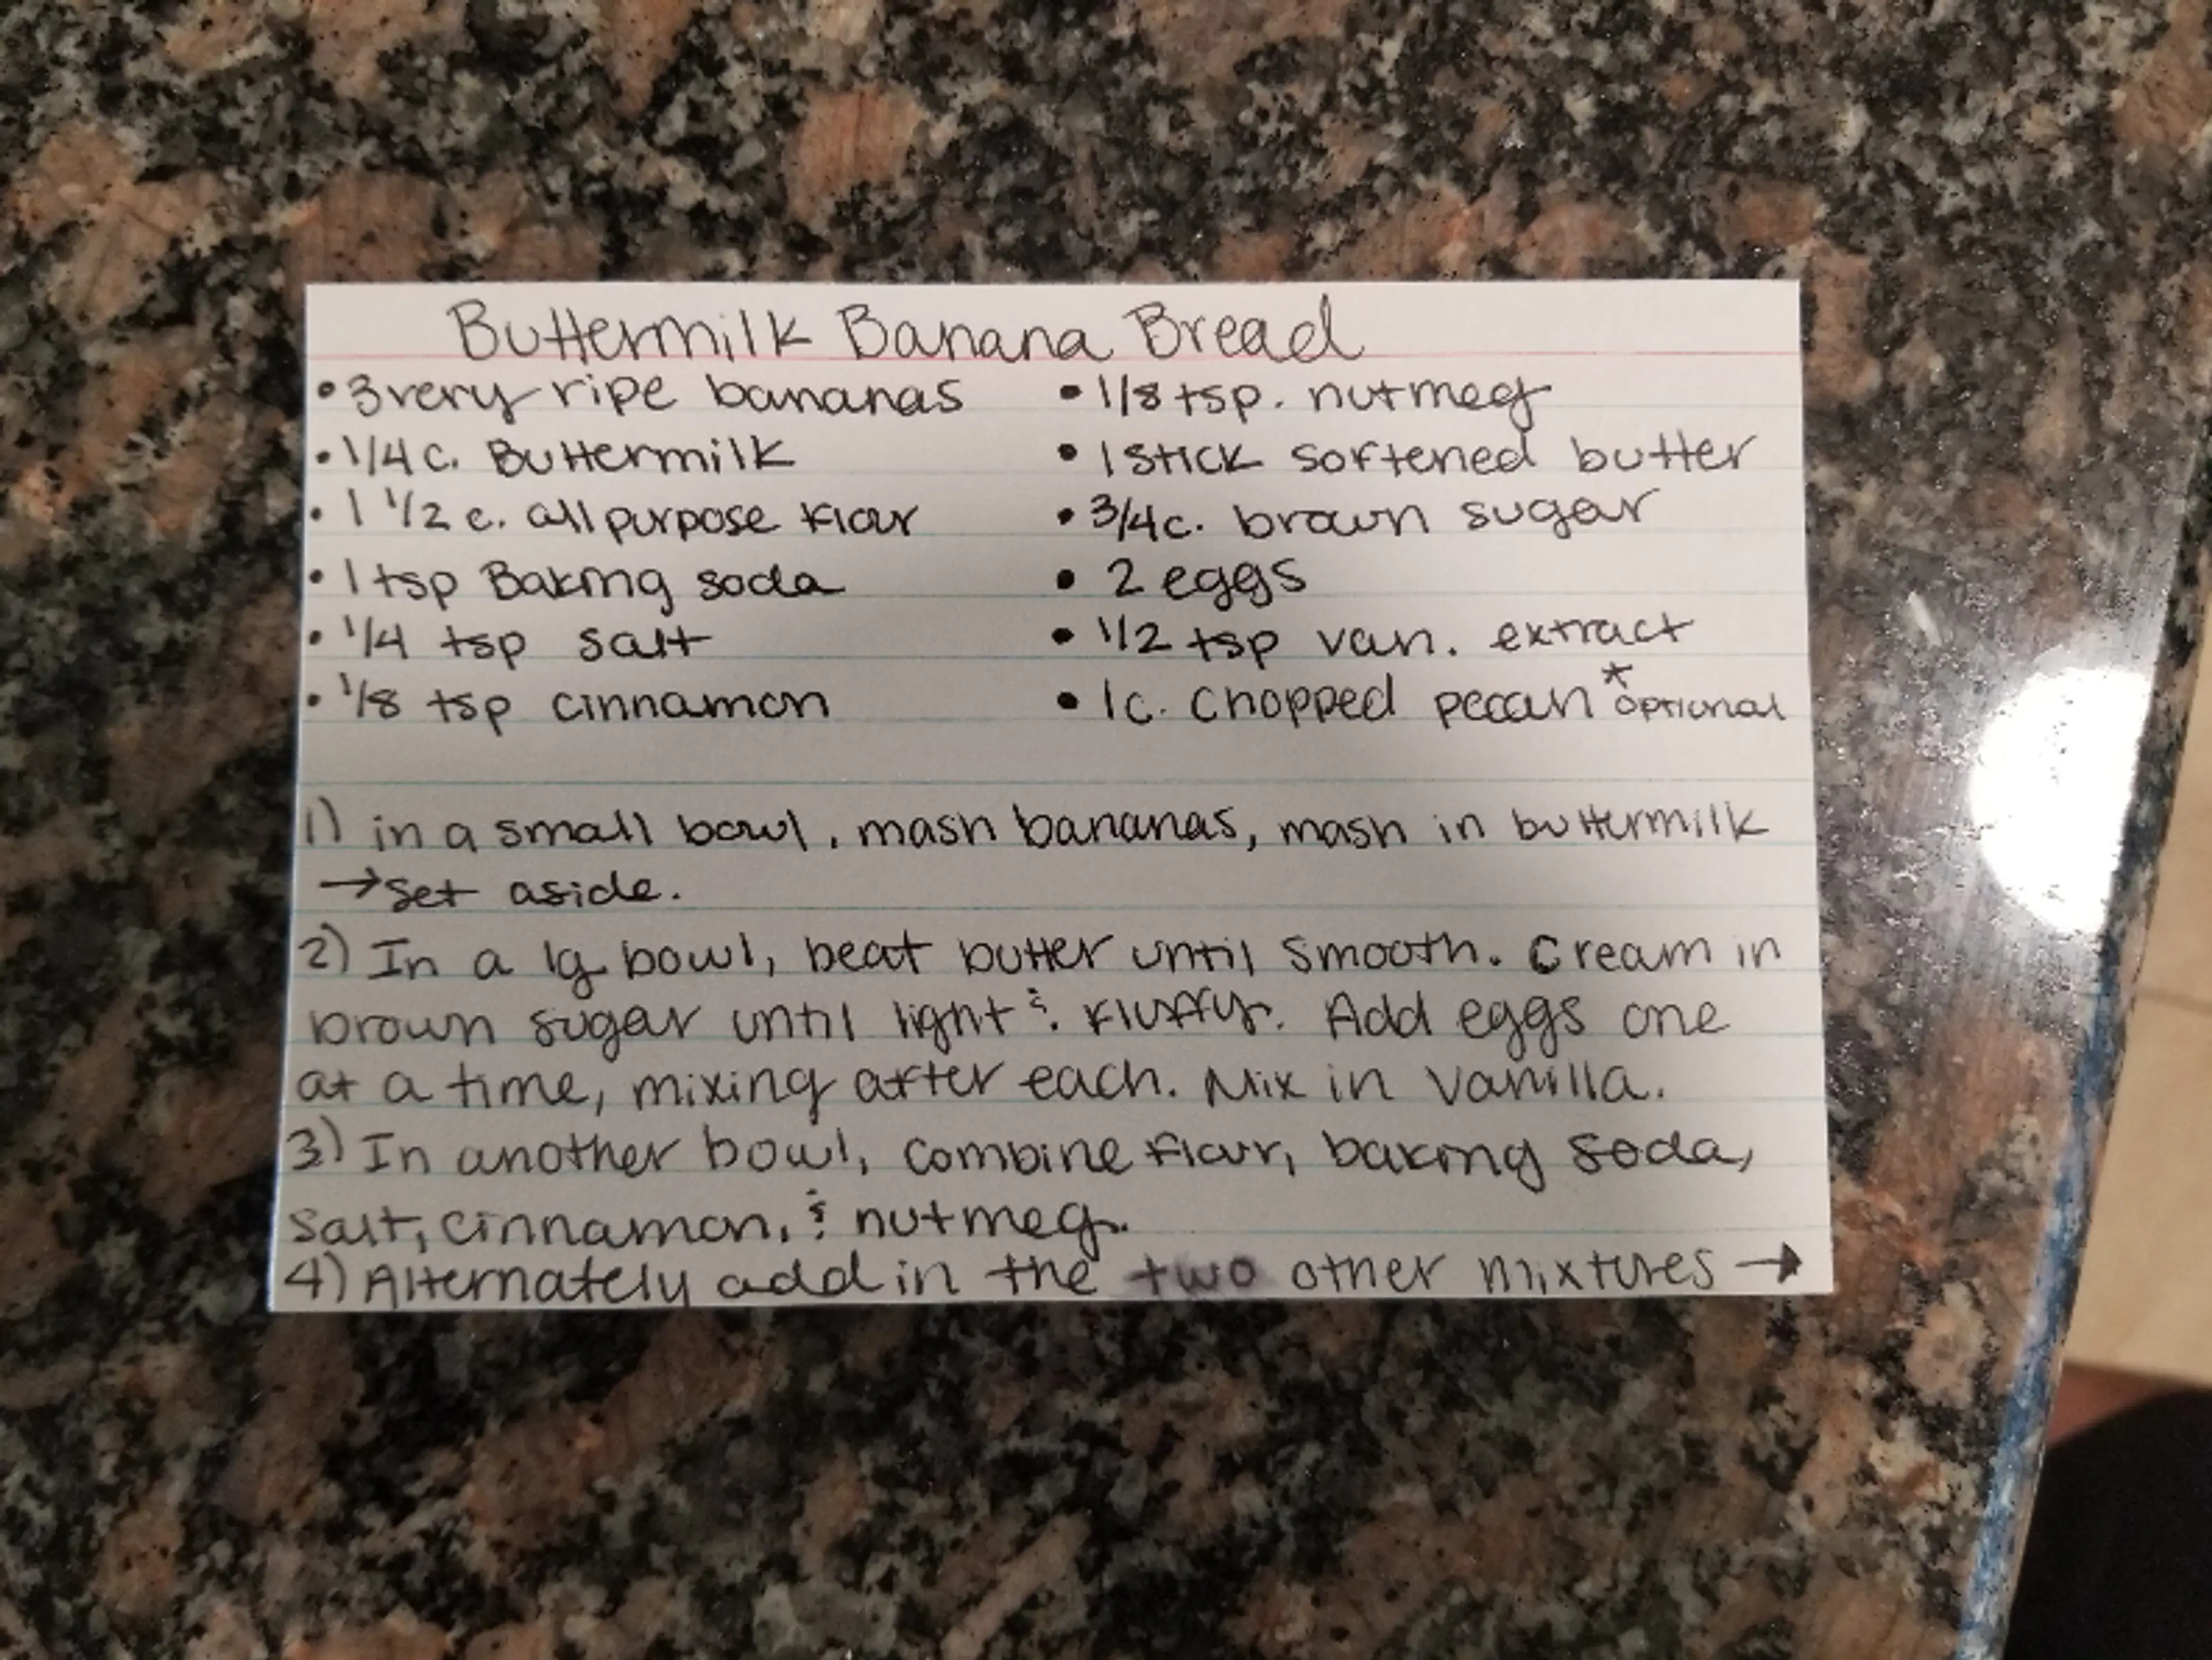 Buttermilk Banana Bread
• 3 very ripe bananas
• 1/4 c. Buttermilk
• 1 1/2 c. all purpose flour
• 1 tsp Baking soda
• 1/4 tsp salt
• 1/8 tsp cinnamon
• 1/8 tsp. nutmeg
• 1 stick softened butter
• 3/4 c. brown sugar
• 2 eggs
• 1/2 tsp van. extract
• 1c. chopped pecan *optional
1) in a small bowl, mash bananas, mash in buttermilk
→ set aside.
2) In a lg bowl, beat butter until smooth. Cream in
brown sugar until light & fluffy. Add eggs one
at a time, mixing after each. Mix in vanilla.
3) In another bowl, combine flour, baking soda,
salt, cinnamon, & nutmeg.
4) Alternately add in the two other mixtures →